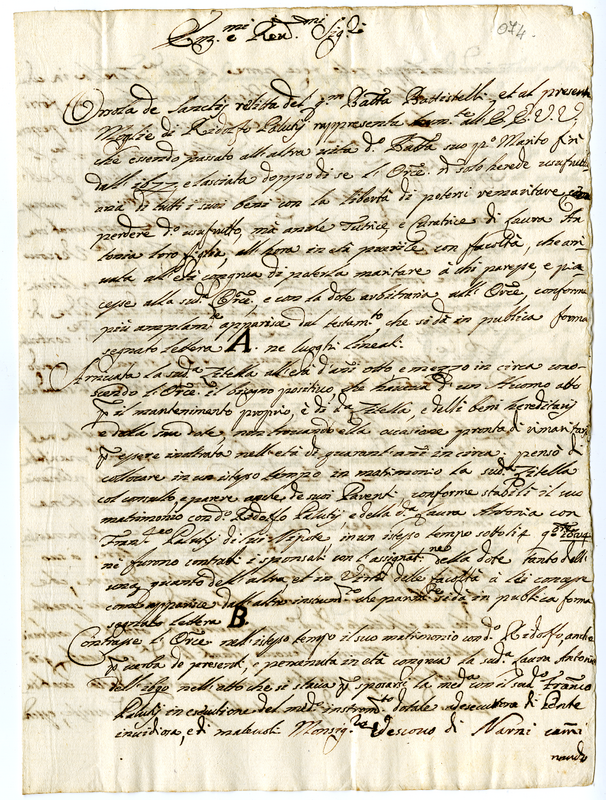 074.
Em.mi e Rev.mi Sig.ri
Orsola de Sanctij relita del qm Batta et al presente
Moglie di Ridolfo Palutij rappresenta hum.te all' E.E. V.V.
che essendo passato all'altra vita d.o Batta suo p.o Marito fin
dall 1677 e lasciata doppo di se l'Or.ce nō solo herede usufrut
di tutti i suoi beni con la libertà di potersi remaritare senza
perdere d.o usufrutto, mà anche Tutrice, e Curatrice di Laura An
tonia loro figlia, all'hora in età puerile con facoltà, che arri
vata all'età congrua di poterla maritare à chi paresse e pia
cesse alla sud.a Or.ce, e con la dote arbitraria all' Or.ce, conforme
più ampiam.te apparisce dal testam.to che si dà in publica forma
segnato lettera A. ne luoghi lineati.
Arrivata la sud.a Zitella all'età d'anni otto e mezzo in circa cono
scendo l'Or.ce il bisogno positivo, che haveva d' un Huomo atto
p il mantenimento proprio, e di d.a Zitella, e delli beni hereditarij
e della sua dote, non trovando ella occasione pronta di rimaritarsi
p essere inoltrata nell'età di quarant'anni in circa, pensò di
collocare in un istesso tempo in matrimonio la sud.a Zitella
col consulto, e parere de suoi Parenti conforme stabilì il suo
matrimonio con d.o Ridolfo Palutij, e della d.a Laura Antonia con
Fran.co Palutij di lui Nepote, in un istesso tempo sotto li 4
ne furono contratti i sponsali con l'assignat.ne della dote tanto dell'
una, quanto dell'altra, et in virtù delle facoltà à lei concesse
come apparisce dall'altro instrum.to che si dà in publica forma
segnato lettera B.
Contrasse l'Or.ce nell'istesso tempo il suo matrimonio con d.o Ridolfo, anche
p verba de presenti, e pervenuta in età congrua la sud.a Laura Antonia
dell' 1690 nell'atto che si stava p sposare la med.a con il sud.o Franc.o
Palutij in esecutione del med.o instrom.to dotale ad
invidiosa, e di malevoli Monsig.re Vescovo di Narni cami
nando